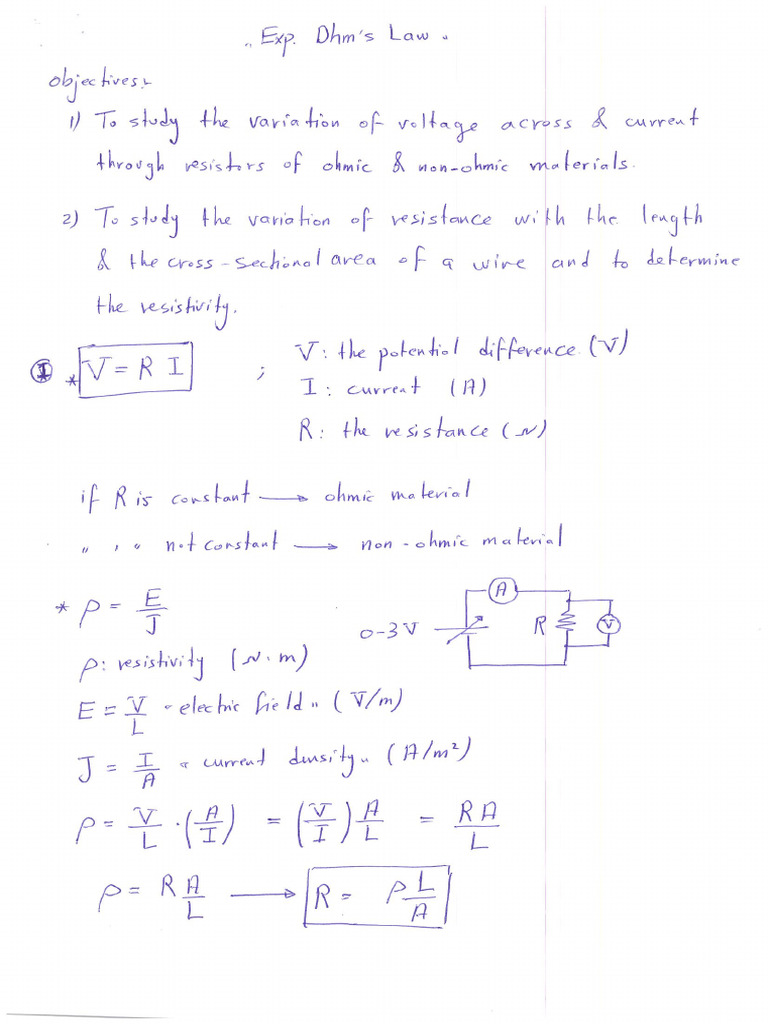 " Exp. Ohm's Law "
Objectives:-
1) To study the variation of voltage across & current
through resistors of ohmic & non-ohmic materials.
2) To study the variation of resistance with the length
& the cross-sectional area of a wire and to determine
the resistivity.
① * V = R I ; V: the potential difference (V)
I: current (A)
R: the resistance (Ω)
if R is constant → ohmic material
" " " not constant → non-ohmic material
* ρ = E/J
A
0-3V R V
ρ: resistivity (Ω.m)
E = V/L "electric field" (V/m)
J = I/A "current density" (A/m²)
ρ = V/L · (A/I) = (V/I) A/L = RA/L
ρ = R A/L → R = ρ L/A